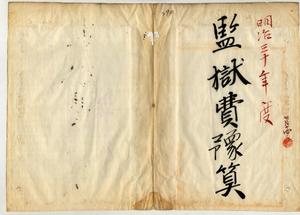 明治三十年度
監獄費豫算